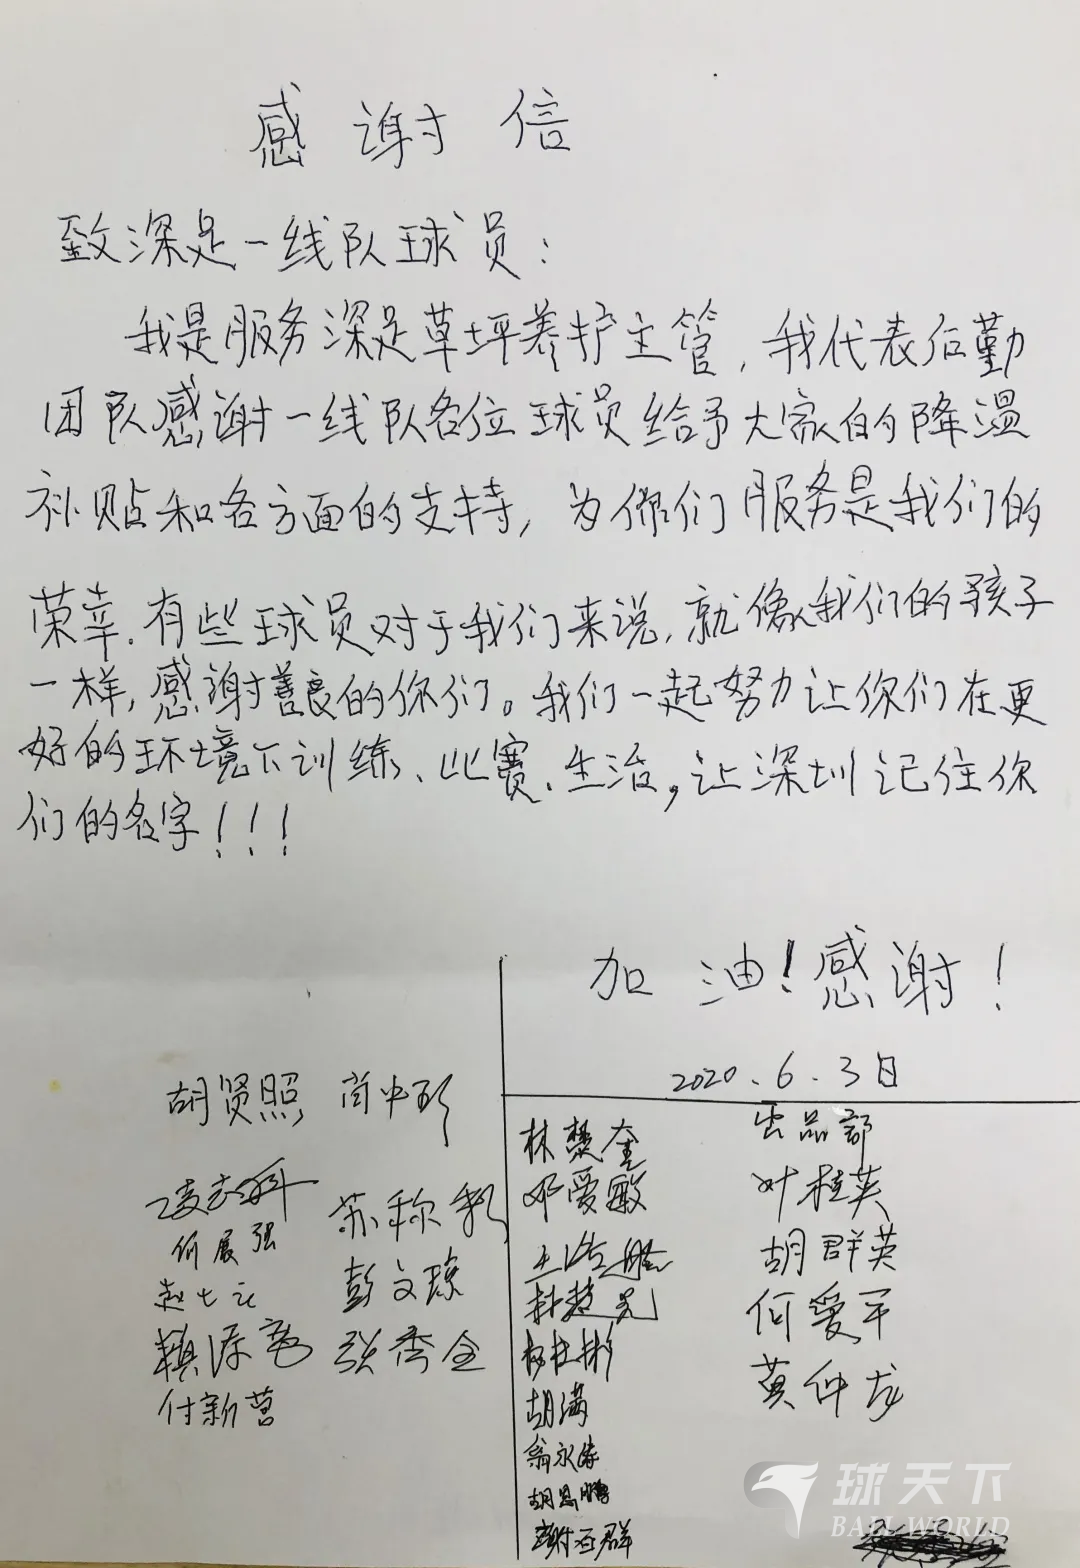 感谢信
致深足一线队球员:
我是服务深足草坪养护主管,我代表后勤
团队感谢一线队各位球员给予大家的降温
补贴和各方面的支持,为你们服务是我们的
荣幸.有些球员对于我们来说,就像我们的孩子
一样,感谢善良的你们。我们一起努力让你们在更
好的环境下训练、比赛、生活,让深圳记住你
们的名字!!!
加油!感谢!
2020.6.3日
胡贤照
何展强
付新营
彭文琼
张秀全
林楚奎
邓爱敏
胡满
翁永涛
出品部
叶桂英
胡群英
何爱平
黄仲龙
球天下
BALL WORLD